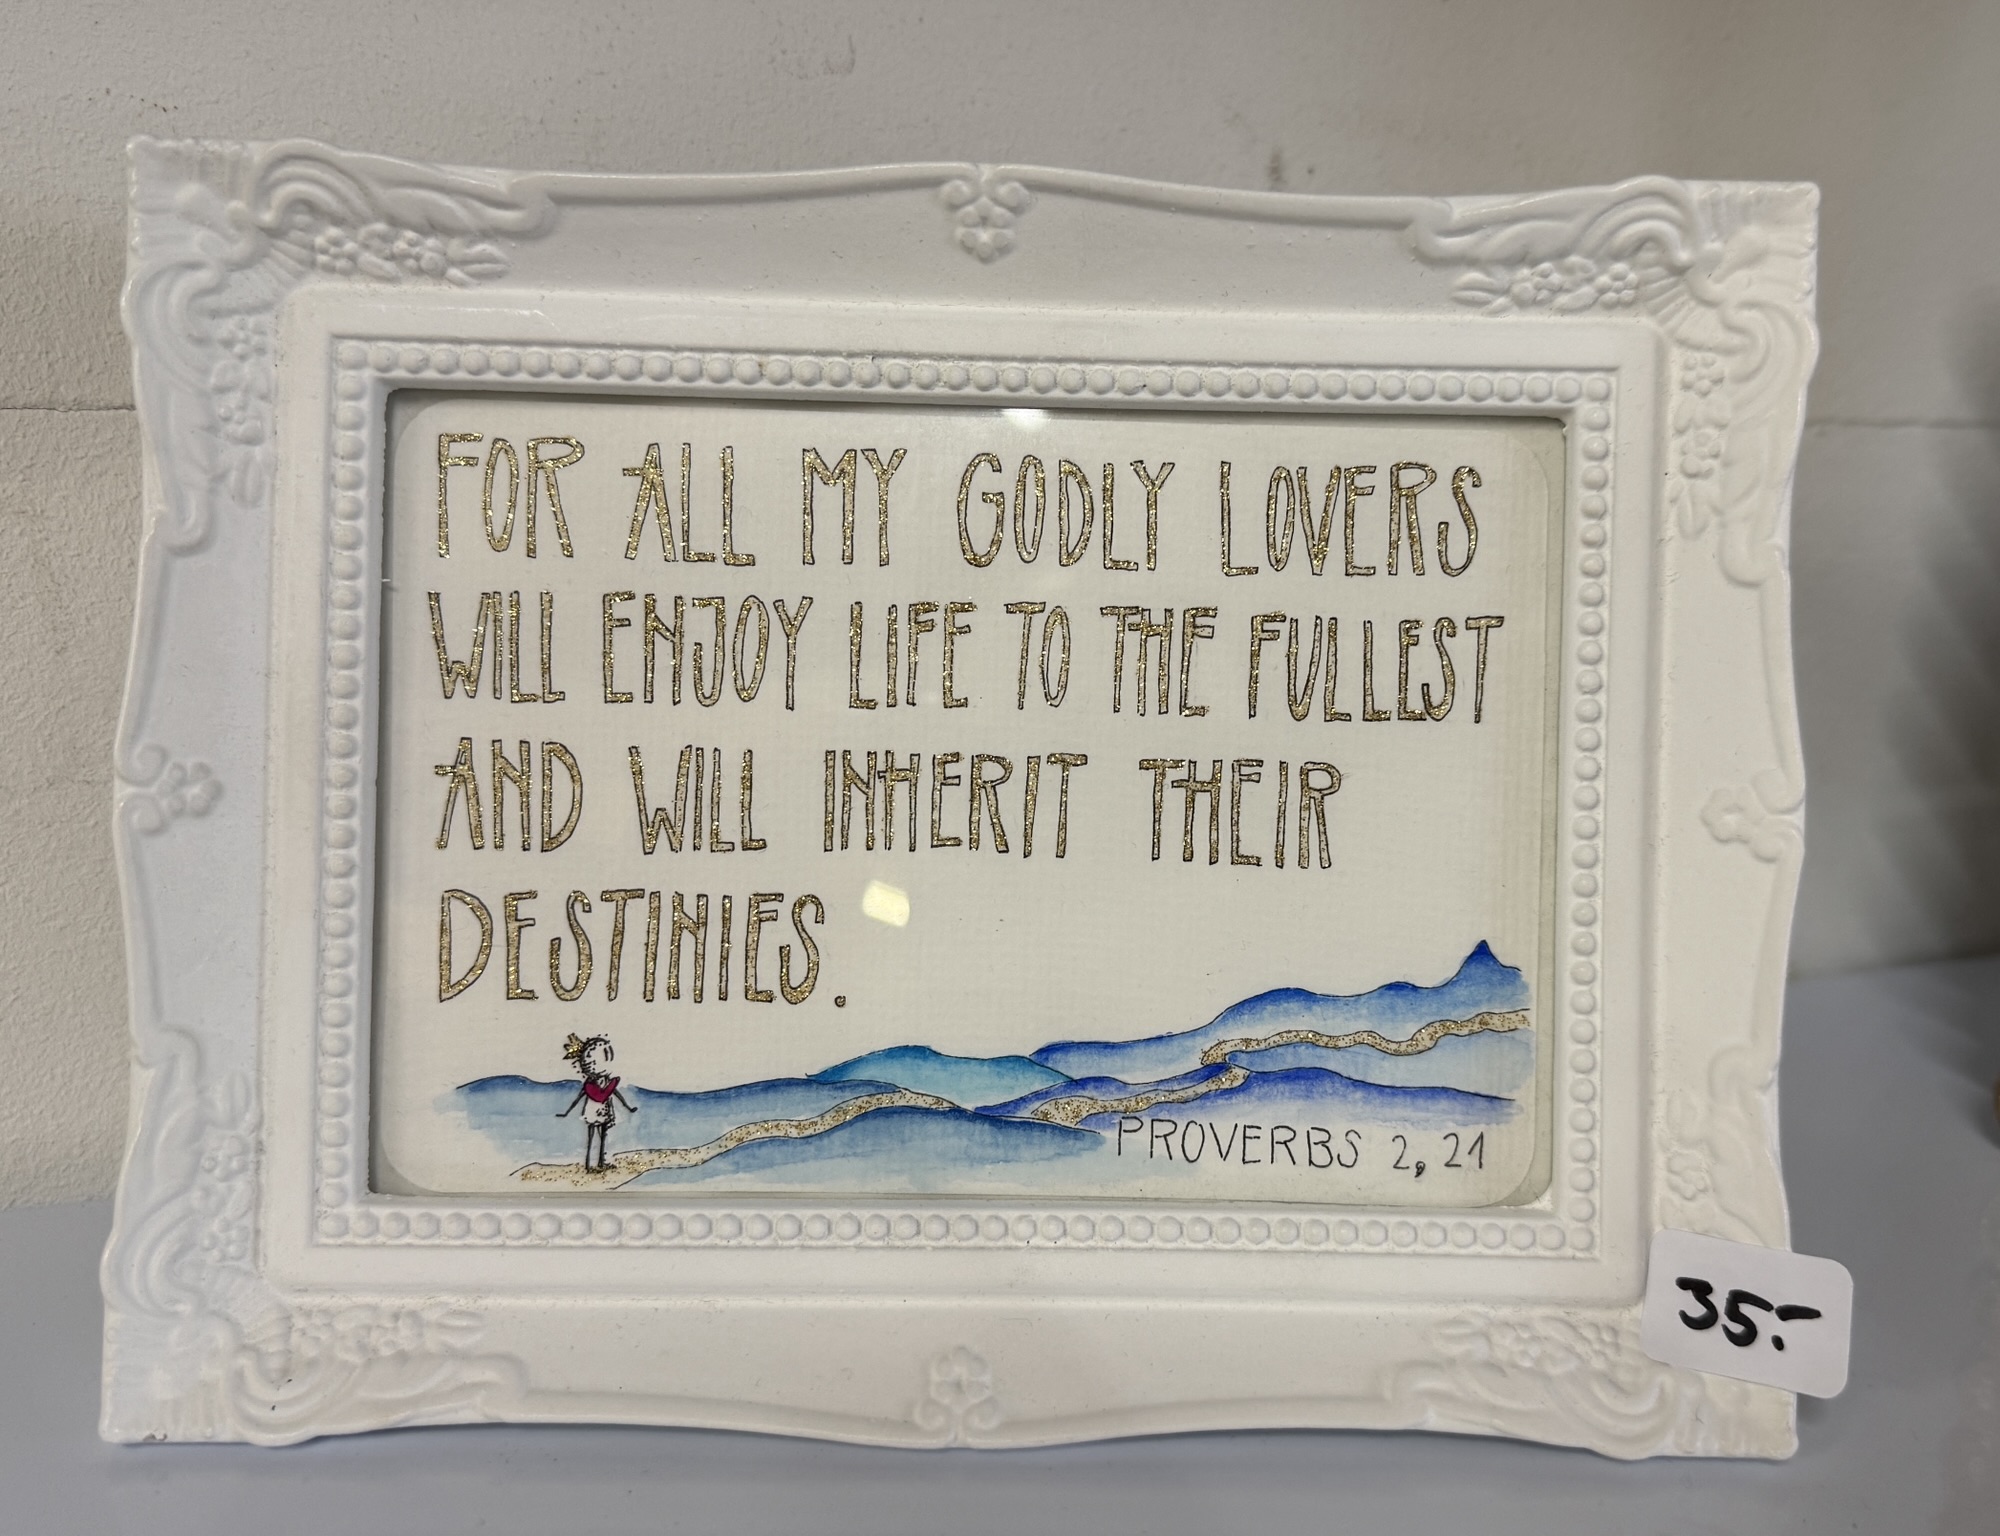 FOR ALL MY GODLY LOVERS
WILL ENJOY LIFE TO THE FULLEST
AND WILL INHERIT THEIR
DESTINIES.
PROVERBS 2, 21
35.-